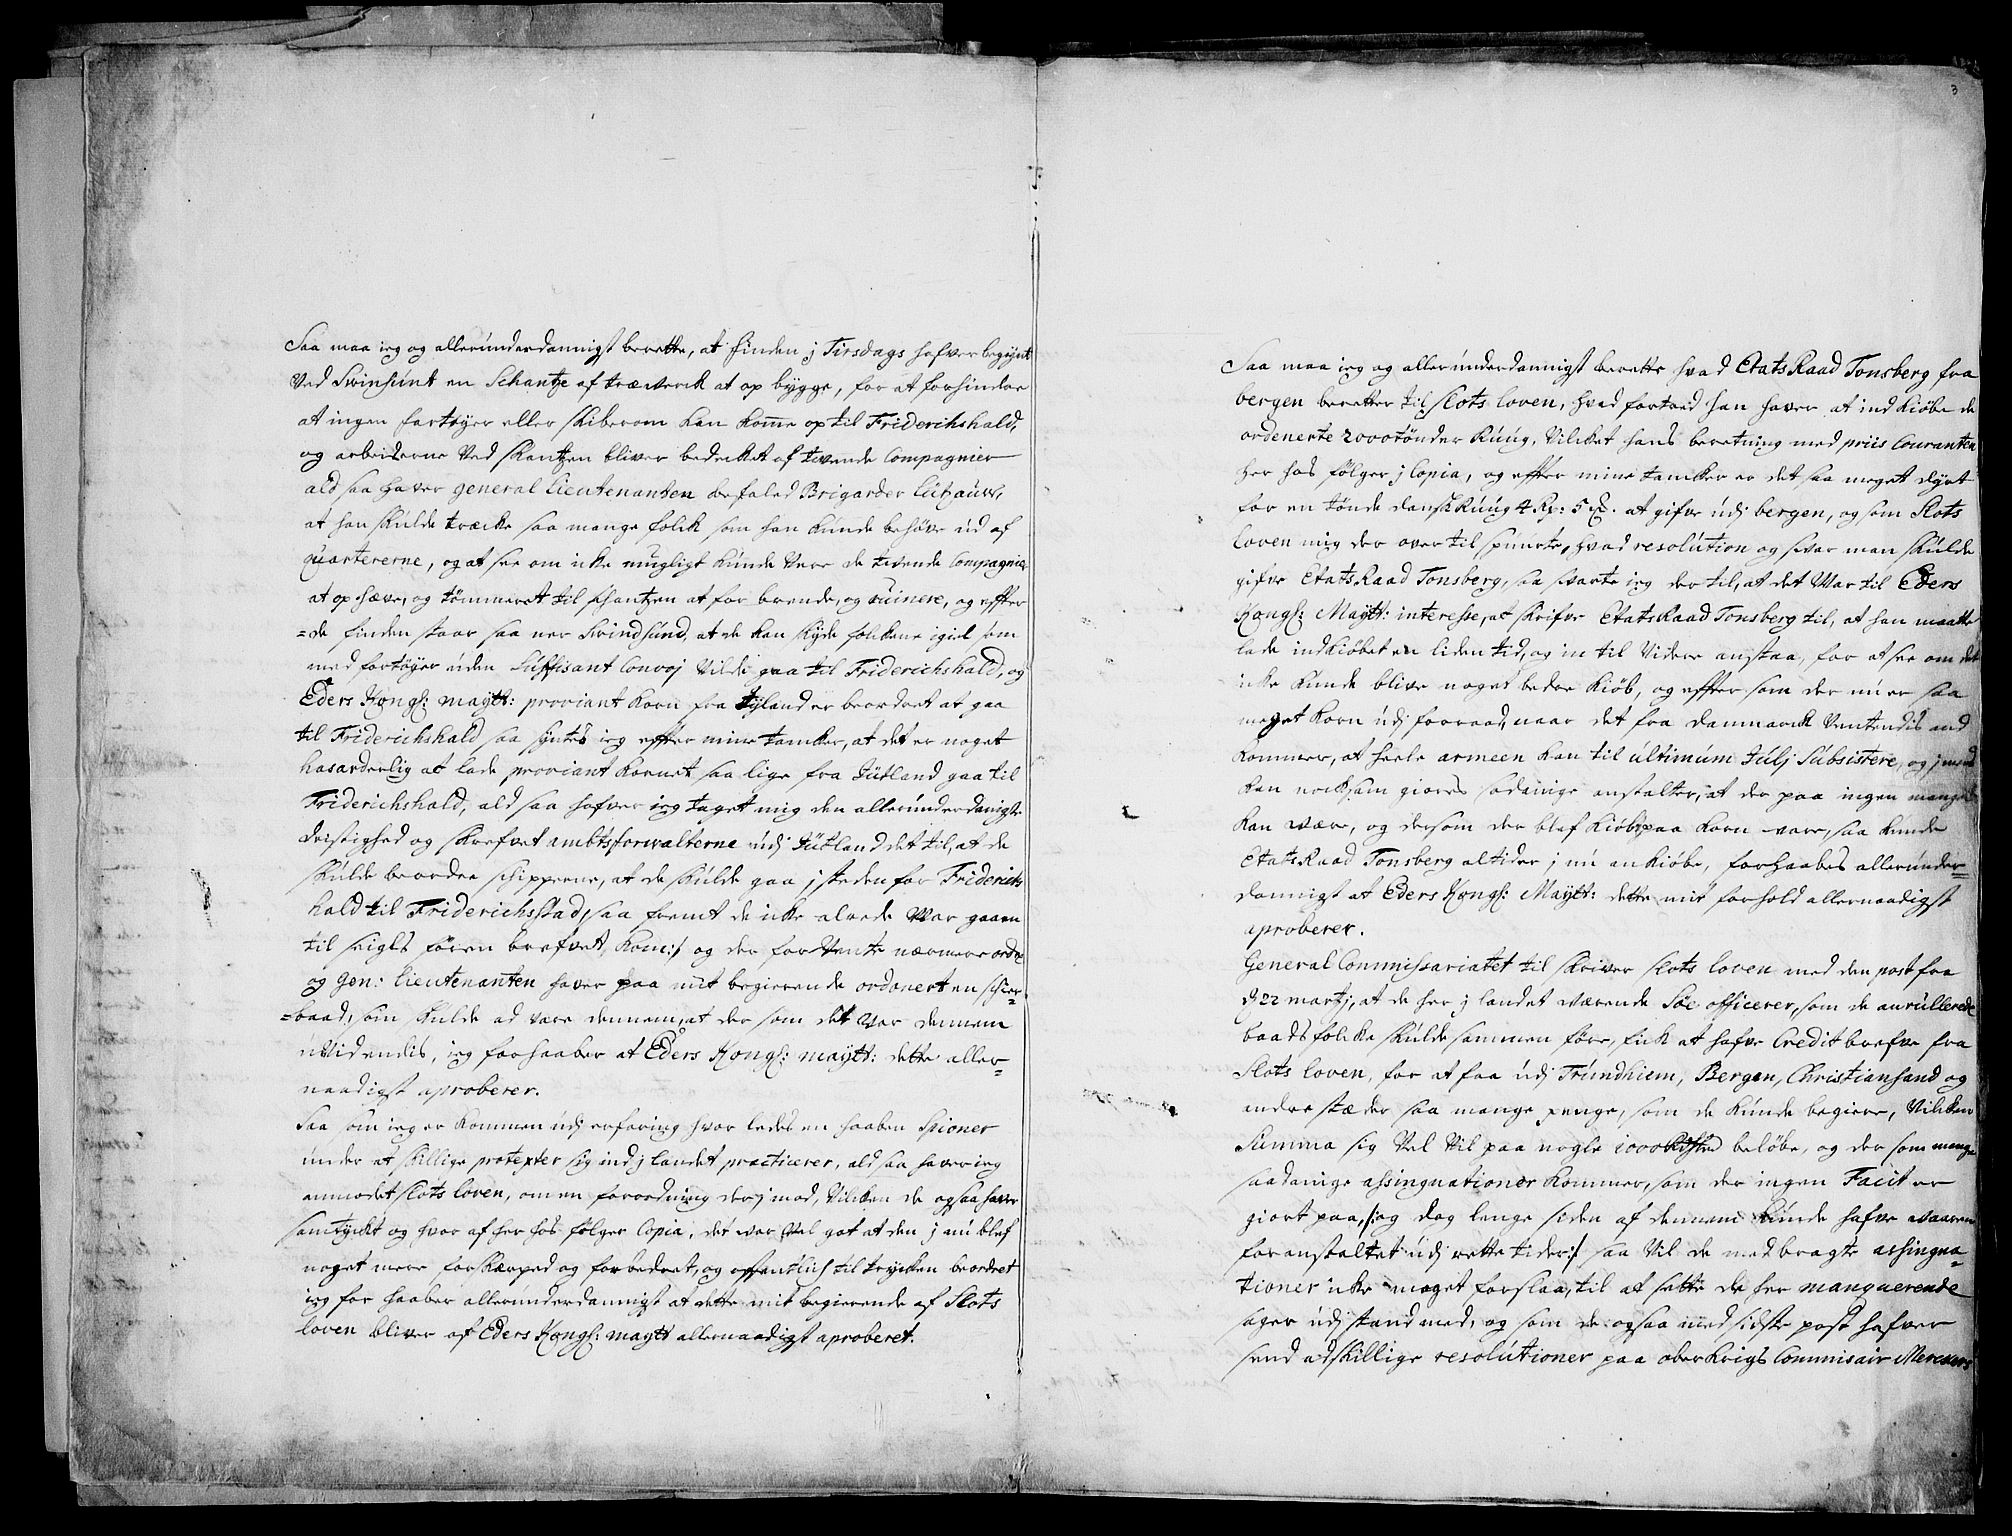 Saa maa ieg og allerunderdannigst berette, at finden j Tirsdags hafver begynt
Ved Swinsund en Schantze af træverck at op bygge, for at forhindre
at ingen fartøyer eller skiberom kan komme op til Friderichshald,
og arbeiderne Ved skantzen bliver bedecket af tvende Compagnier
ald saa haver general Lieutenanten befaled Brigarder Lützauw,
at han skulde trecke saa mange folck som han kunde behøve ud af
quartererne, og at see om icke mugligt kunde Vere de tvende Compagnier
at op hæve, og tømmeret til schantzen at for brende, og ruinere, og effter
=de finden staar saa ner Swindsund, at de kan skyde folckene igiel som
med fartøyer uden Suffisant Convoj Vilde gaa til Friderichshald, og
Eders Kongl: maytt: proviant korn fra Jyland er beordret at gaa
til Friderichshald saa syntes ieg effter mine tancker, at det er noget
hasarderlig at lade proviant kornet saa lige fra Jütland gaa til
Friderichshald, ald saa hafver ieg taget mig den allerunderdanigste
dristighed og skrefvet ambtsforwalterne udj Jütland det til, at de
skulde beordre schipperne, at de skulde gaa j steden for Friderichs
hald til Friderichsstad, saa fremt de icke alrede War gaaen
til seigls føren brefvet, kom:/ og der for Vente nærmere ordre
og Gen: Lieutenanten haver paa mit begierende ordonert en schier=
=baad, som skulde ad vare dennem, at der som det var dennem
uVidendis, ieg forhaaber at Eders Kongl: maytt: dette aller=
naadigst aproberer.
Saa som ieg er kommen udj erfaring hvor ledes en haaben Spioner
under at skillige protexter sig ind j landet practicerer, ald saa haver ieg
anmodet Slots loven, om en forordning der j mod, Vilcken de ogsaa haver
samtyckt og hvor af her hos følger Copia, det war Vel got at den j nu blef
noget mere forskærped og forbedret, og offentlich til trycken beordret
ieg for haaber allerunderdannigst at dette mit begierende af Slots
loven bliver af Eders Kongl: maytt allernaadigst aproberet.
3
Saa maa ieg og allerunderdannigst berette hvad EtatsRaad Tonsberg fra
bergen beretter til Slots loven, hvad fortred han haver at ind kiøbe de
ordenerte 2000 tønder Ruug, Vilcket hans beretning med priis Couranten
her hos følger j Copia, og effter mine tancker er det saa meget dyrt
for en tønde dansk Ruug 4 Rp: 5 at gifve udj bergen, og som Slots
loven mig der over til spuurte, hvad resolution og svar man skulde
gifve EtatsRaad Tonsberg, saa svarte ieg der til, at det War til Eders
Kongl: Maytt: interesse, at skrifve EtatsRaad Tonsberg til, at han maatte
lade indkiøbet en liden tid, og in til Videre anstaa, for at see om det
icke kunde blive noget bedre kiøb, og effter som der nu er saa
meget korn udj forraad, naar det fra Danmarck Ventendis and
kommer, at heele armeen kan til ultimum Julj Subsistere, og j
kan nocksom giøres sodanige anstalter, at der paa ingen mangel
kan være, og dersom der blef kiøb paa korn vare, saa kunde
EtatsRaad Tonsberg altider j nu ankiøbe, forhaabes allerunder=
dannigst at Eders Kongl: Maytt: dette mit forhold allernaadigst
aproberer.
General Commissariatet til skriver Slots loven med den post fra
d 22 martj, at de her j landet wærende Søe officerer, som de anrullerede
baadsfolcke skulde sammen føre, fick at hafve Credit brefve fra
Slots loven, for at faa udj Trundhiem, Bergen, Christiansand og
andre stæder saa mange penge, som de kunde begiere, Vilcken
Summa sig Vel Vil paa nogle 1000 beløbe, og der som mange
saadanige assingnationer kommer, som der ingen Facit er
giort paa,/:og dog lenge siden af dennem kunde hafve waaren
foranstaltet udj rette tider:/ saa Vil de med bragte assingna=
tioner icke meget forslaa, til at sette de her manquerende
sager udj stand med, og som de ogsaa med sidste post hafver
send adskillige resolutioner paa oberkrigs Commisair Merckers